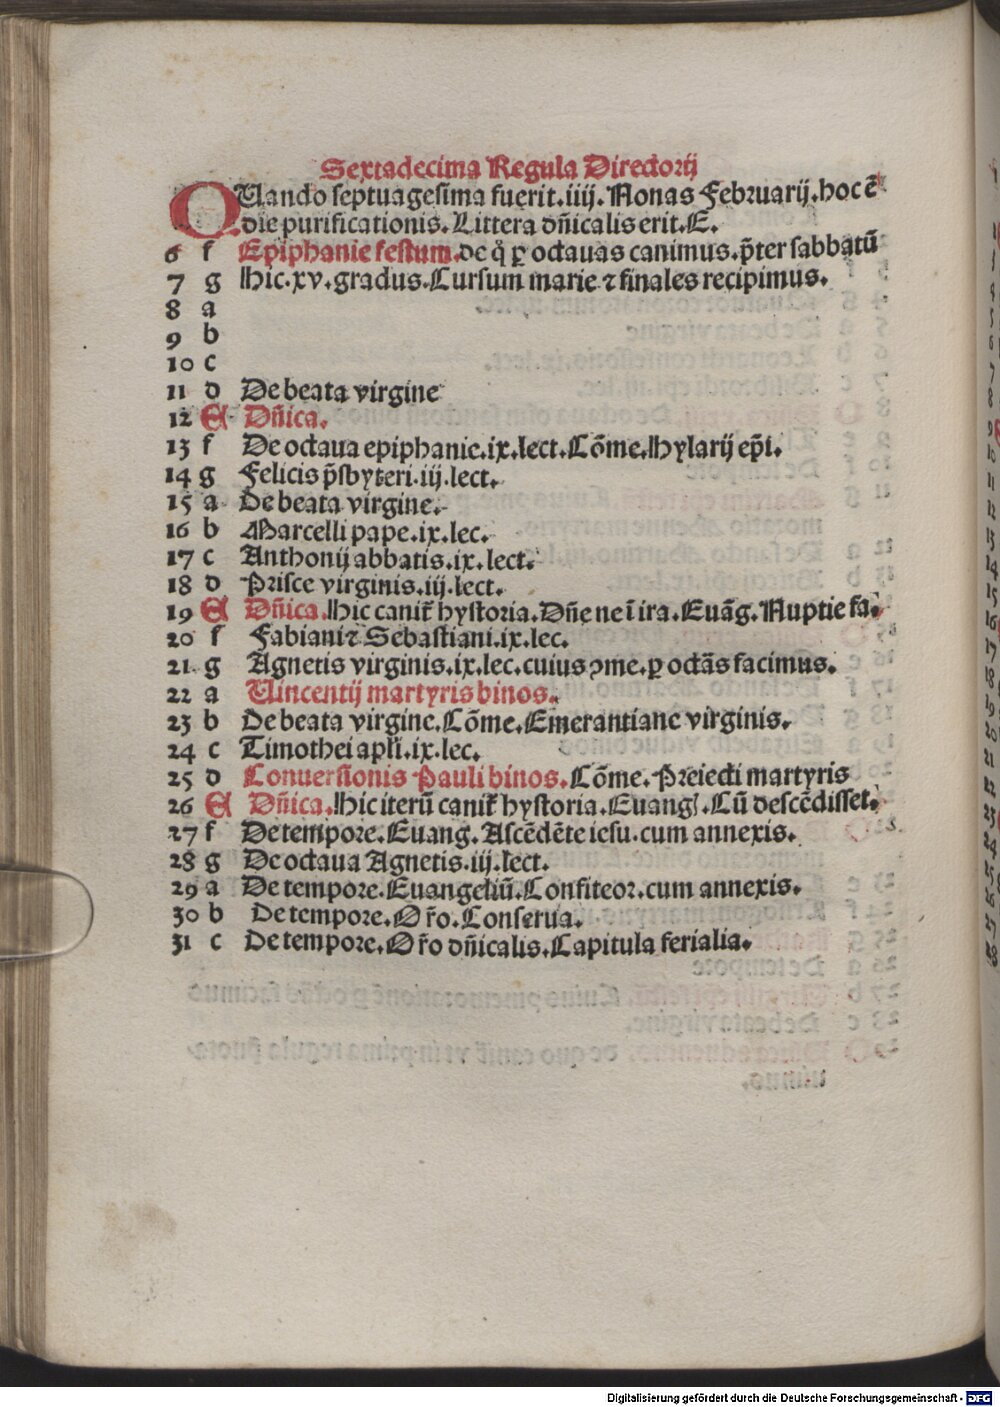 Sextadecima Regula Directorij
QUando septuagesima fuerit.iiij.Nonas Februarij.hoc ē
die purificationis.Littera dn̄icalis erit.E.
6 f Epiphanie festum.de q̊ ꝑ octauas canimus.p̄ter sabbatū
7 g Hic.xv.gradus.Cursum marie ⁊ finales recipimus.
8 a
9 b
10 c
11 d De beata virgine
12 E Dn̄ica.
13 f De octaua epiphanie.ix.lect.Cōme.Hylarij ep̄i.
14 g Felicis p̄sbyteri.iij.lect.
15 a De beata virgine.
16 b Marcelli pape.ix.lec.
17 c Anthonij abbatis.ix.lect.
18 d Prisce virginis.iij.lect.
19 E Dn̄ica.Hic canit̄ hystoria.Dn̄e ne ī ira.Euāg.Nuptie fa.
20 f Fabiani⁊ Sebastiani.ix.lec.
21 g Agnetis virginis.ix.lec.cuius ꝯme.ꝑ octās facimus.
22 a Uincentij martyris binos.
23 b De beata virgine.Cōme.Emerantiane virginis.
24 c Timothei apl̄i.ix.lec.
25 d Conuersionis Pauli binos.Cōme.Preiecti martyris
26 E Dn̄ica.Hic iterū canit̄ hystoria.Euangl.Cū descēdisset.
27 f De tempore.Euang.Ascēdēte iesu.cum annexis.
28 g De octaua Agnetis.iij.lect.
29 a De tempore.Euangeliū.Confiteor.cum annexis.
30 b De tempore.Or̄o.Conserua.
31 c De tempore.Or̄o dn̄icalis.Capitula ferialia.
Digitalisierung gefördert durch die Deutsche Forschungsgemeinschaft - DFG